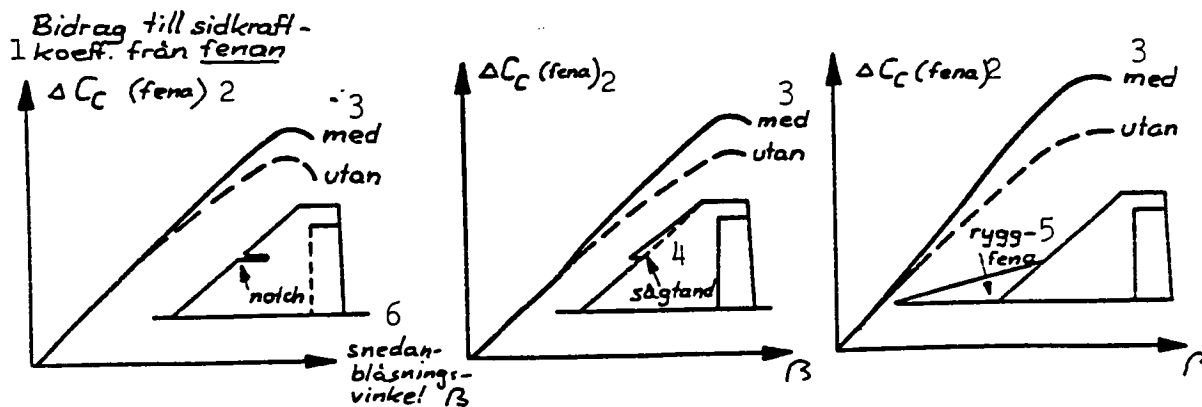 Bidrag till sidkraft-
1 koeff. från fenan
ΔCc (fena) 2
3
med
utan
notch
6
snedan-
blåsnings-
vinkel β
ΔCc (fena) 2
3
med
utan
4
sågtand
β
ΔCc (fena) 2
3
med
utan
rygg- 5
fena
β